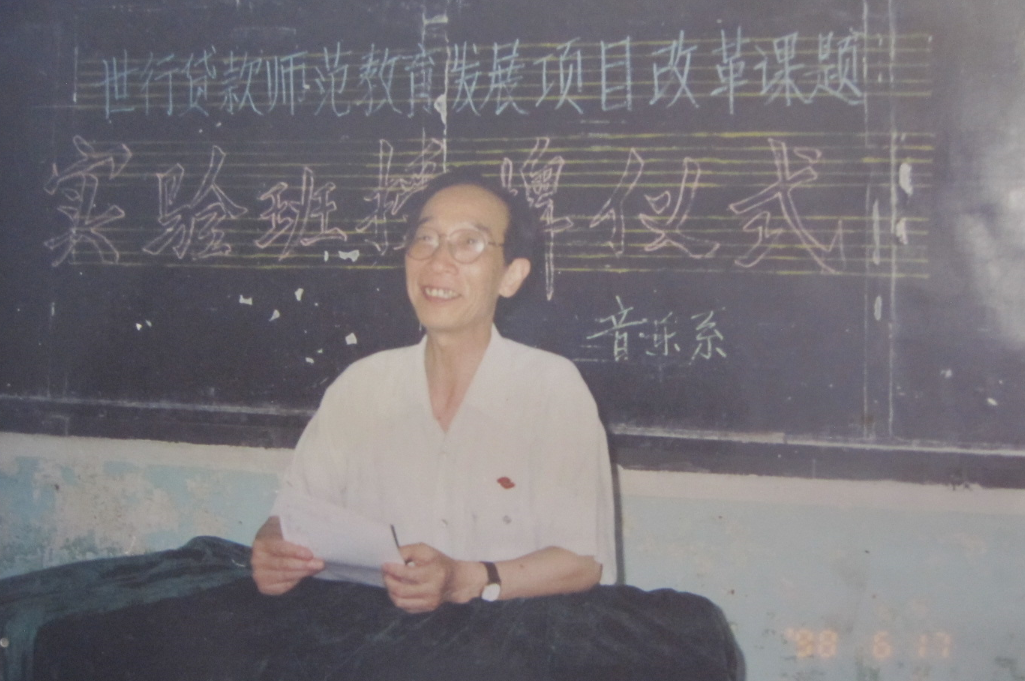 世行贷款师范教育发展项目改革课题
实验班授牌仪式
音乐系
'98 6 17